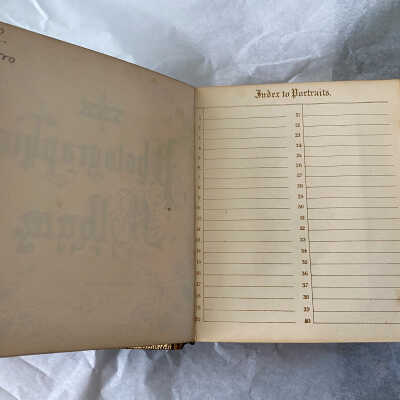 Index to Portraits.
1
2
3
4
5
6
7
8
9
10
11
12
13
14
15
16
17
18
19
20
21
22
23
24
25
26
27
28
29
30
31
32
33
34
35
36
37
38
39
40